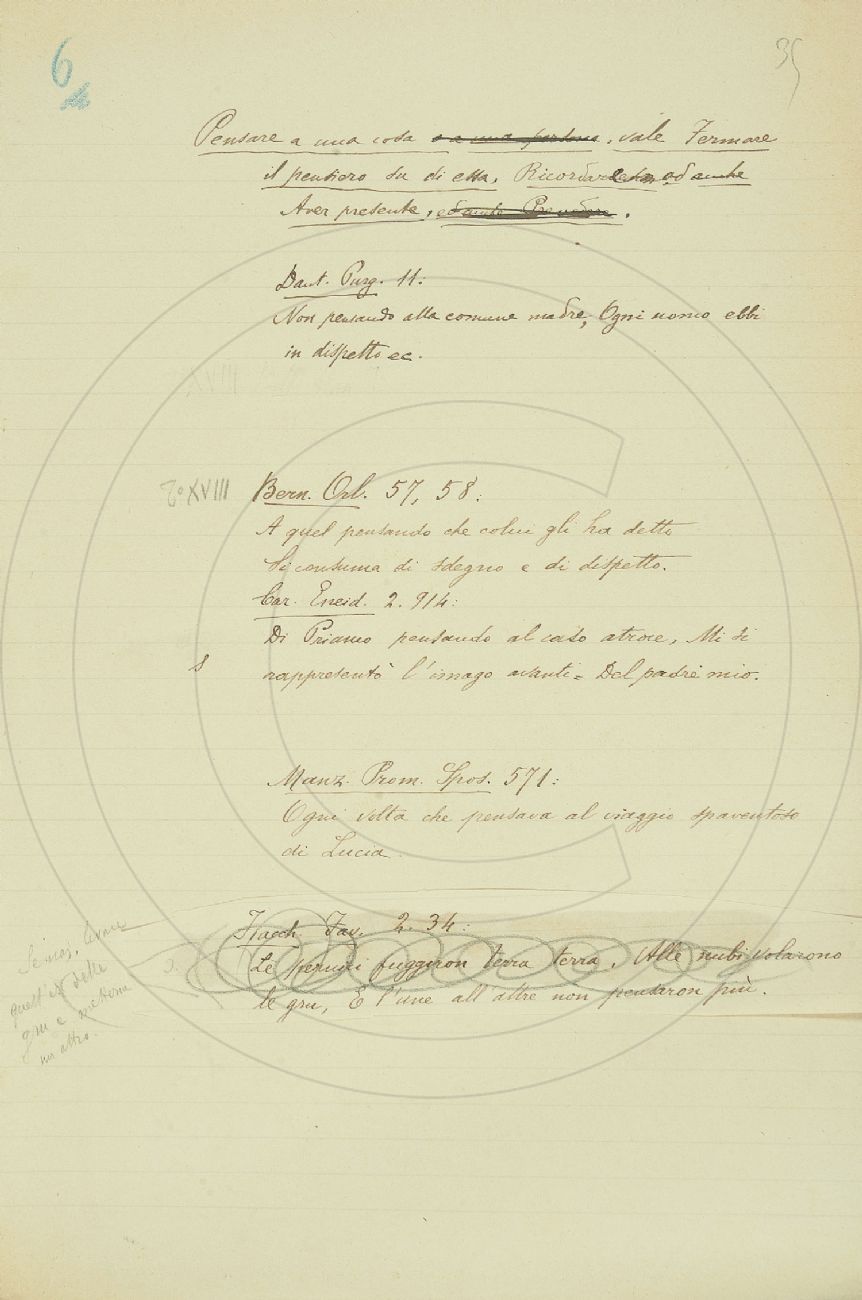 6
35
Pensare a una cosa o a una persona, vale Fermare
il pensiero su di essa, Ricordarlesta, od anche
Aver presente, ed anche Prendere.
Dant. Purg. 11:
Non pensando alla comune madre, Ogni uomo ebbi
in dispetto ec.
XVIII
2° XVIII Bern. Orl. 57, 58:
A quel pensando che colui gli ha detto
Si consuma di sdegno e di dispetto.
Car. Eneid. 2. 914:
Di Priamo pensando al caso atroce, Mi si
rappresentò l'imago avanti = Del padre mio.
Manz. Prom. Spos. 571:
Ogni volta che pensava al viaggio spaventoso
di Lucia.
Fiacch. Fav. 2. 34:
Le pernici fuggiron terra terra, Alle nubi volarono
le gru, E l'une all'altre non pensaron più.
quest'es. delle
gru e metterne
un altro.